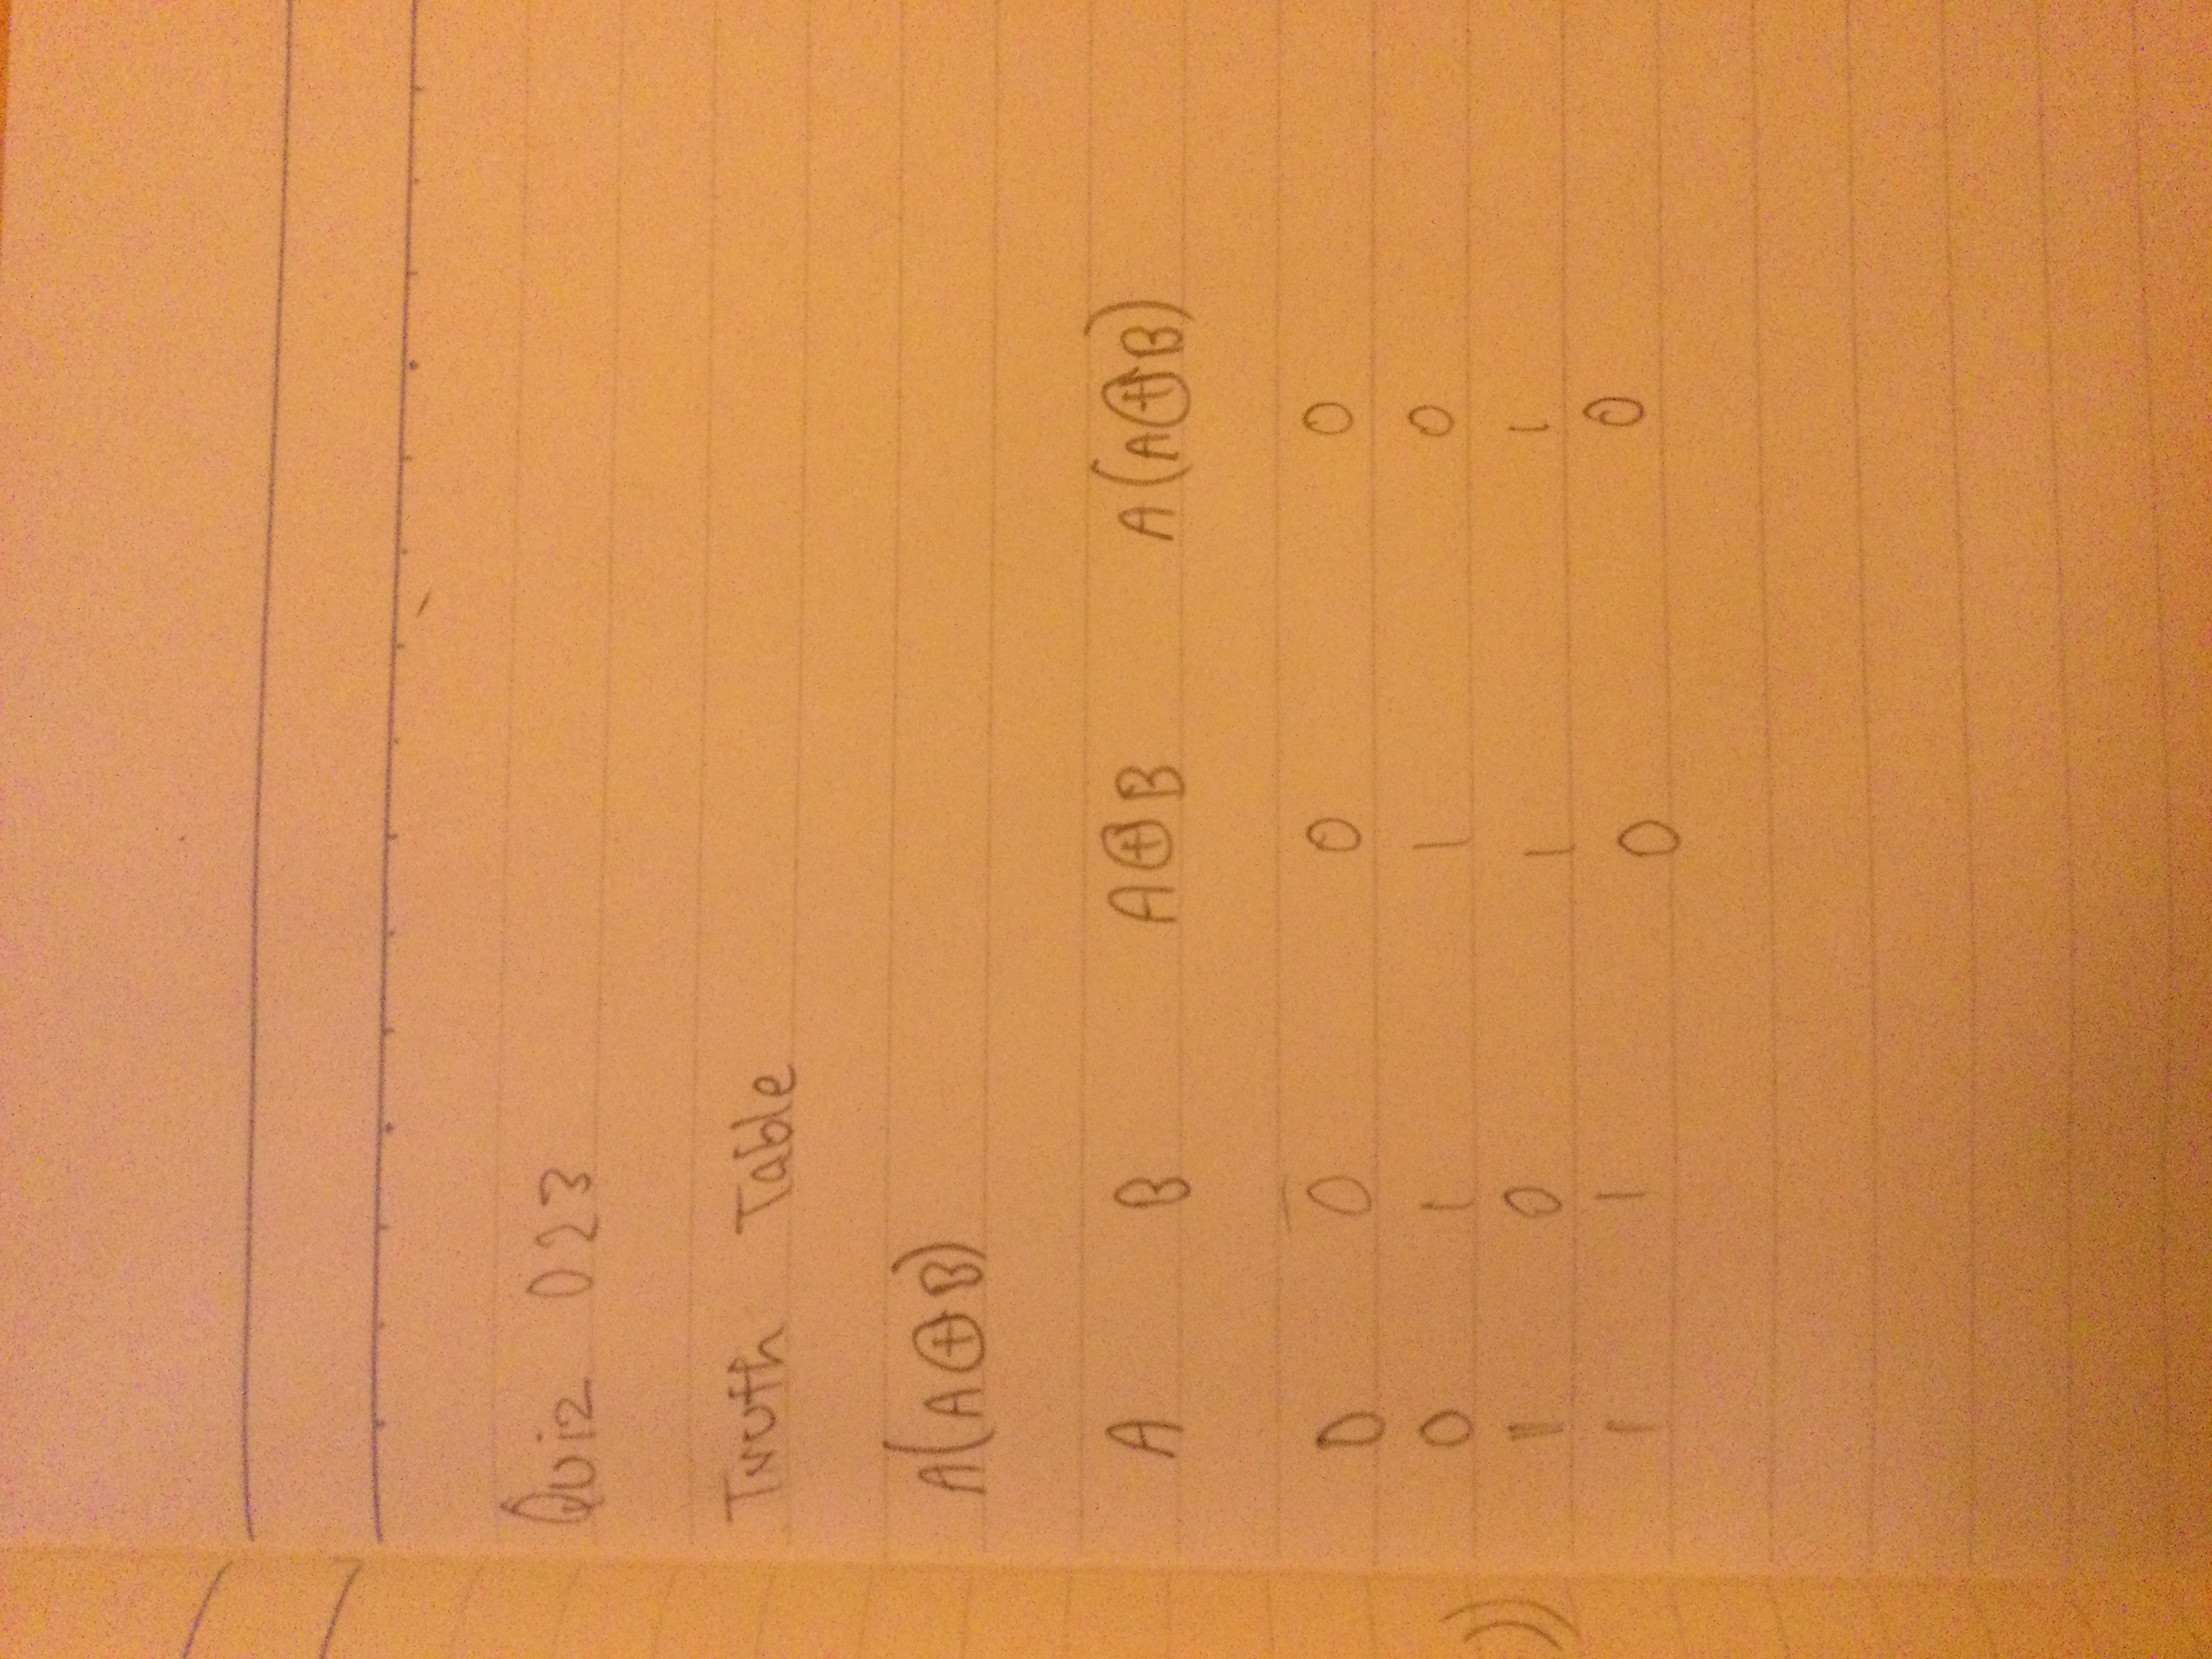 Quiz 023
Truth Table
A(A⊕B)
A B A⊕B A(A⊕B)
0 0 0 0
0 1 1 0
1 0 1 1
1 1 0 0
))